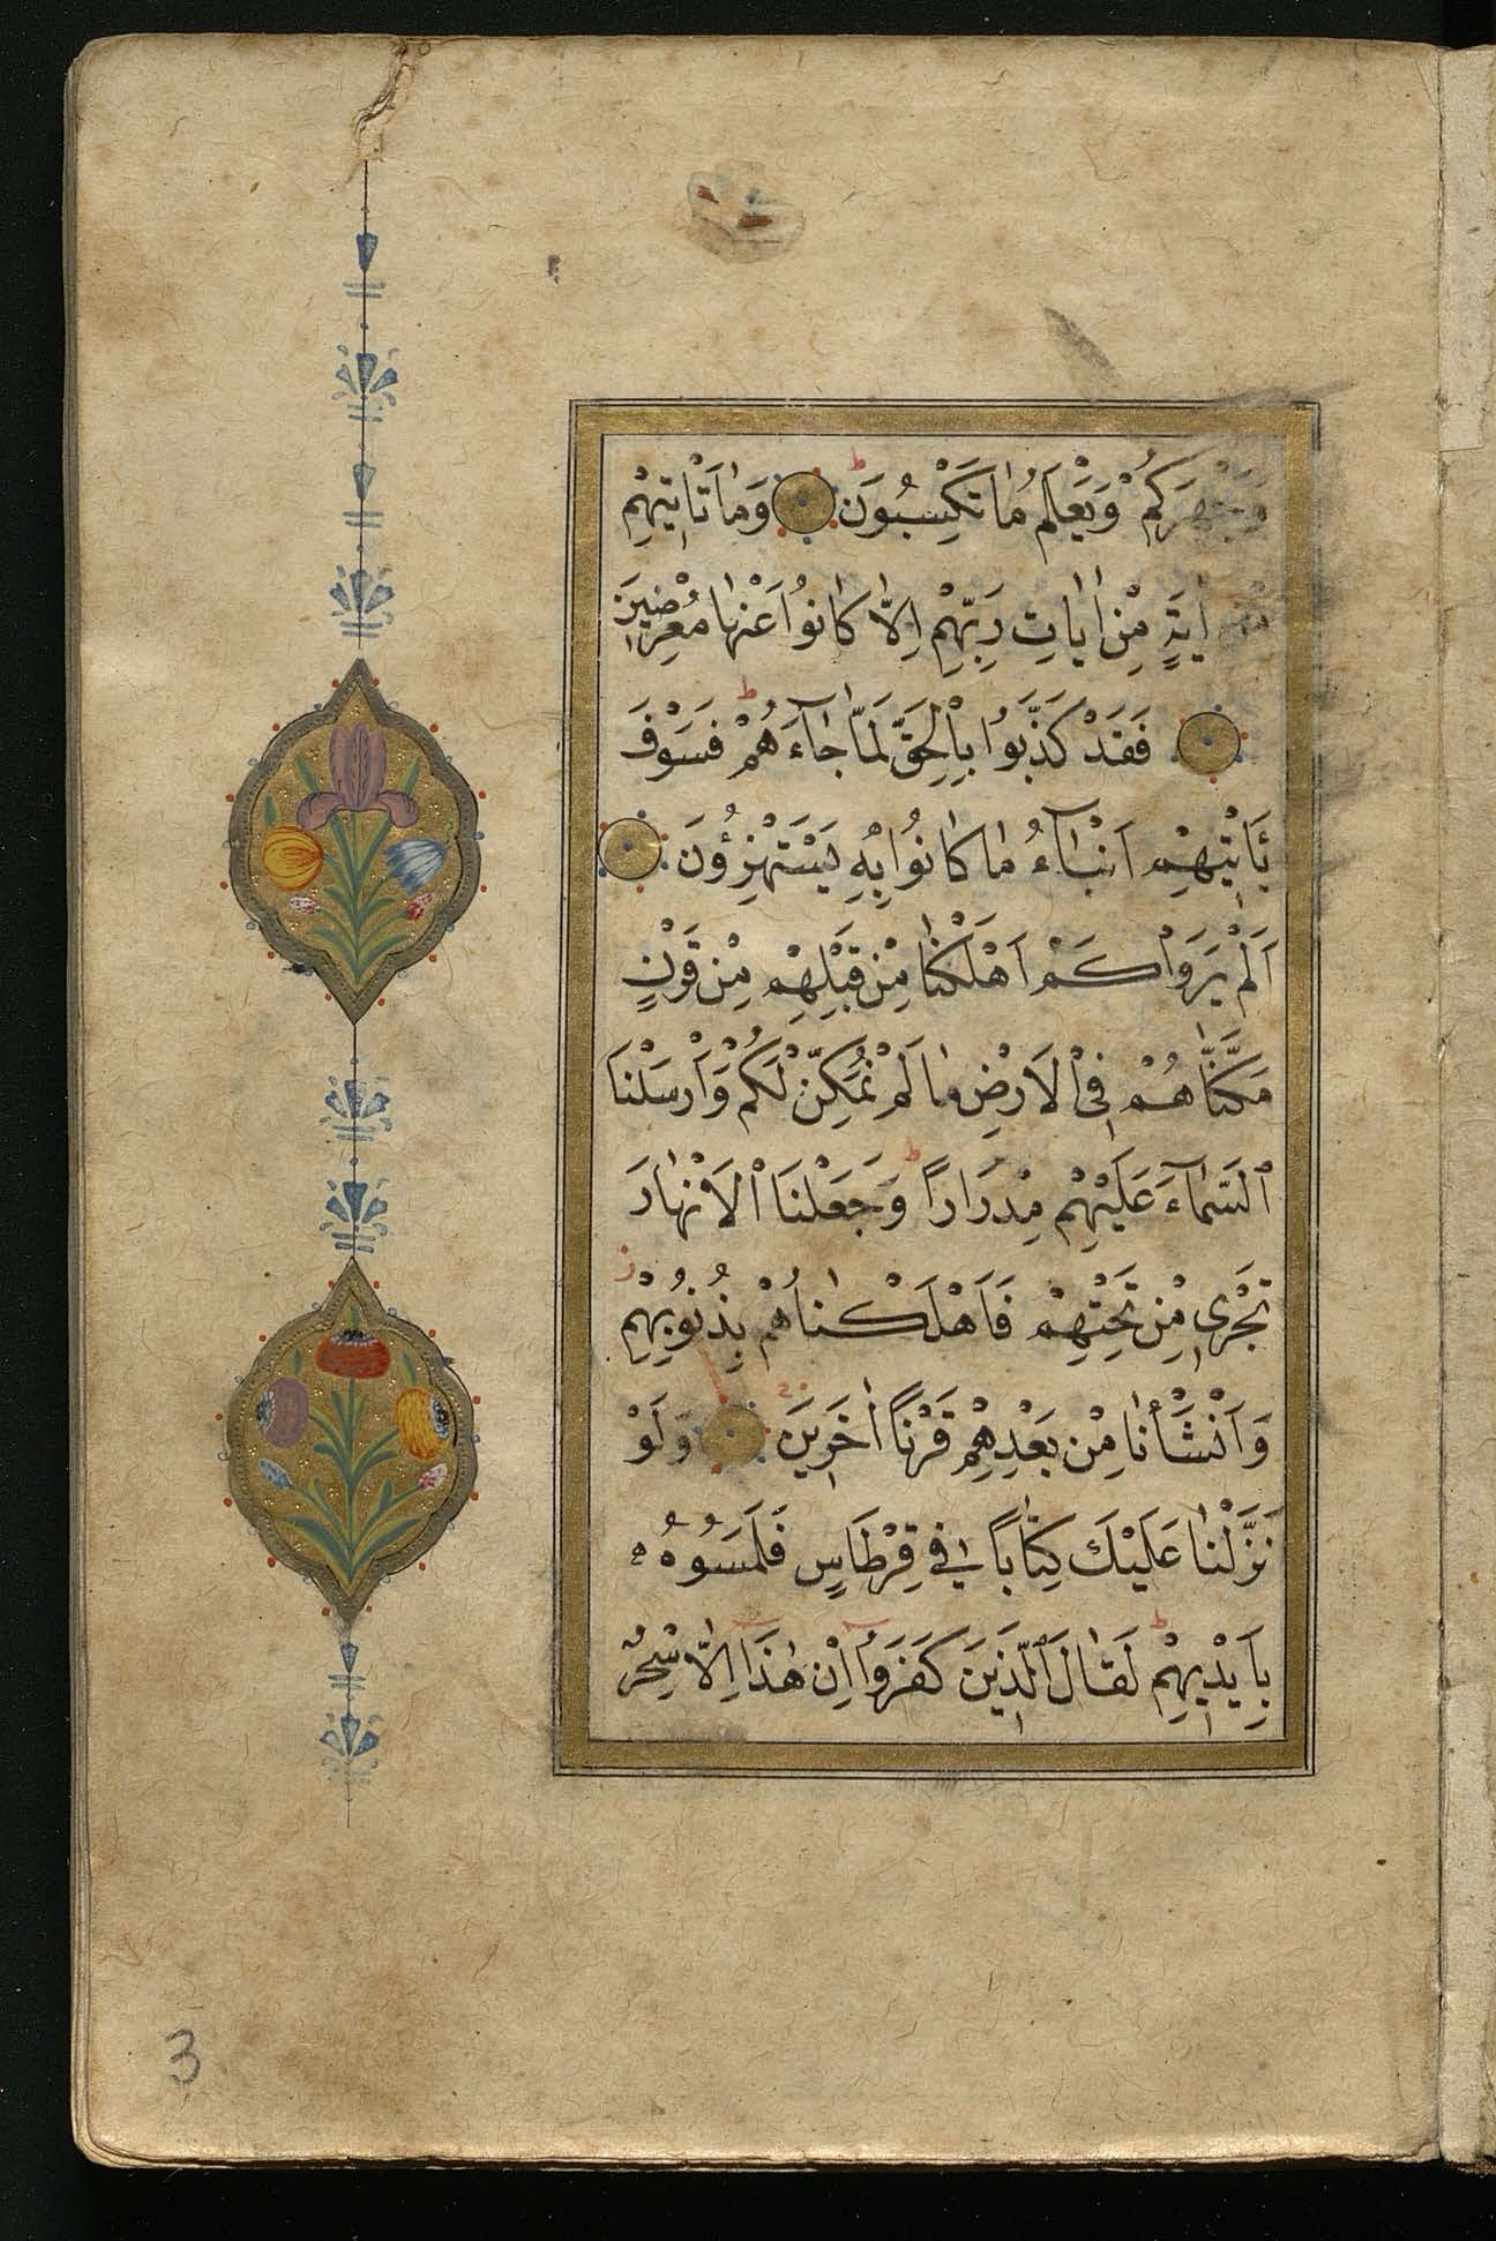 وَجَهْرَكُمْ وَيَعْلَمُ مَا تَكْسِبُونَ وَمَا تَأْتِيهِمْ
مِنْ اٰيَةٍ مِنْ اٰيَاتِ رَبِّهِمْ اِلَّا كَانُوا عَنْهَا مُعْرِضِينَ
فَقَدْ كَذَّبُوا بِالْحَقِّ لَمَّا جَاۤءَهُمْ ط فَسَوْفَ
يَأْتِيهِمْ اَنْبَاۤءُ مَا كَانُوا بِهِ يَسْتَهْزِؤُنَ
اَلَمْ يَرَوْا كَمْ اَهْلَكْنَا مِنْ قَبْلِهِمْ مِنْ قَرْنٍ
مَكَّنَّاهُمْ فِي الْاَرْضِ مَا لَمْ نُمَكِّنْ لَكُمْ وَاَرْسَلْنَا
ٱلسَّمَاۤءَ عَلَيْهِمْ مِدْرَارًا ط وَجَعَلْنَا ٱلْاَنْهَارَ
تَجْرِي مِنْ تَحْتِهِمْ فَاَهْلَكْنَاهُمْ بِذُنُوبِهِمْ ز
وَاَنْشَأْنَا مِنْ بَعْدِهِمْ قَرْنًا اٰخَرِينَ وَلَوْ
نَزَّلْنَا عَلَيْكَ كِتَابًا فِي قِرْطَاسٍ فَلَمَسُوهُ
بِاَيْدِيهِمْ ط لَقَالَ ٱلَّذِينَ كَفَرُوا اِنْ هٰذَا اِلَّا سِحْرٌ
3